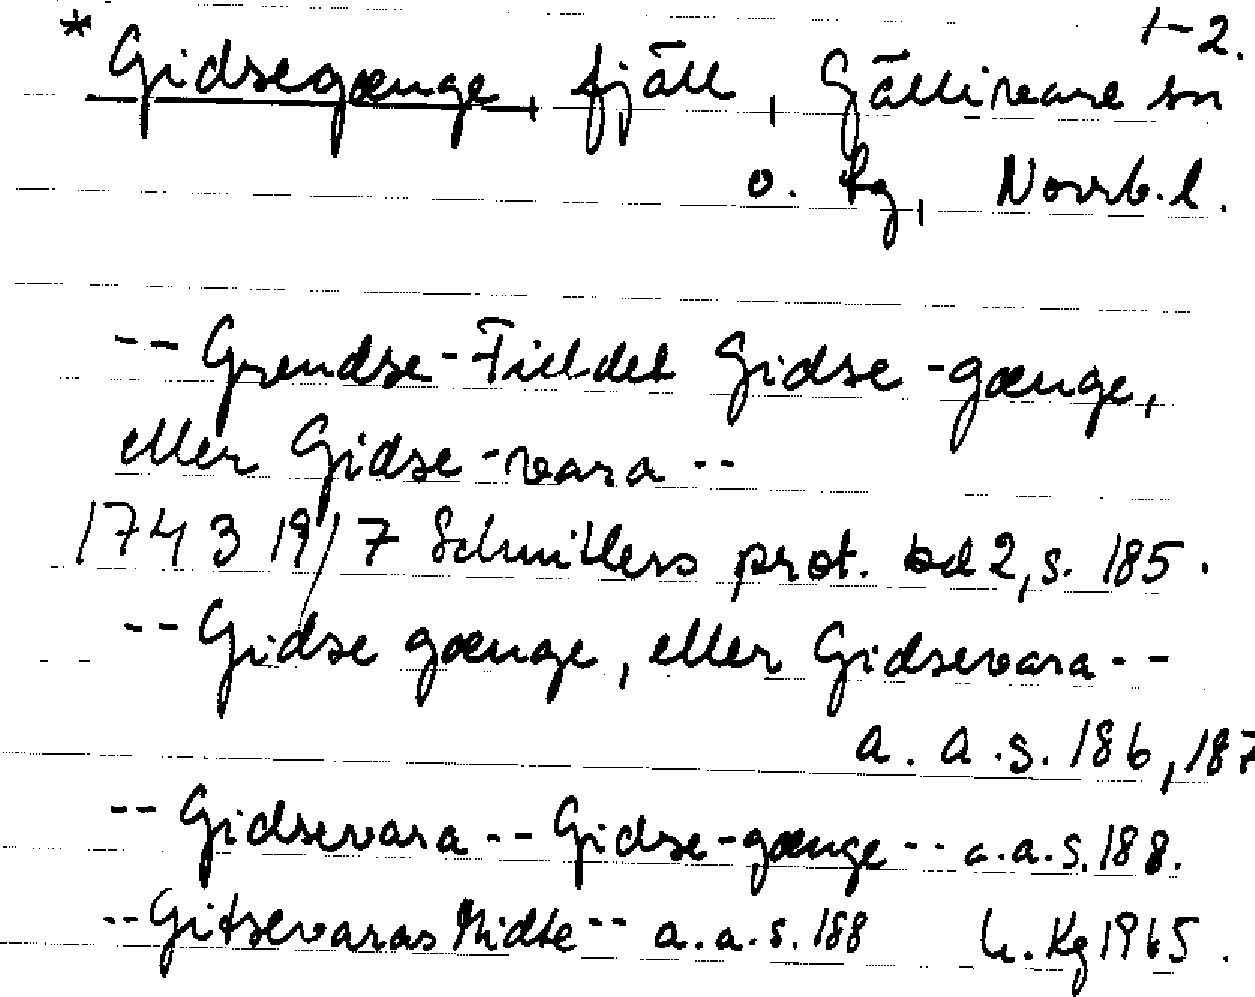 1-2.
* Gidsegænge, fjäll, Gällivare sn
o. kg, Norrb. l.
-- Grendse-Fieldet Gidse-gænge,
eller Gidse-vara --
1743 19/7 Schnitlers prot. bd 2, s. 185.
-- Gidse gænge, eller Gidsevara --
a. a. s. 186, 187
-- Gidsevara -- Gidse-gænge -- a. a. s. 188.
-- Gitsevaras Midte -- a. a. s. 188 Kg 1965.